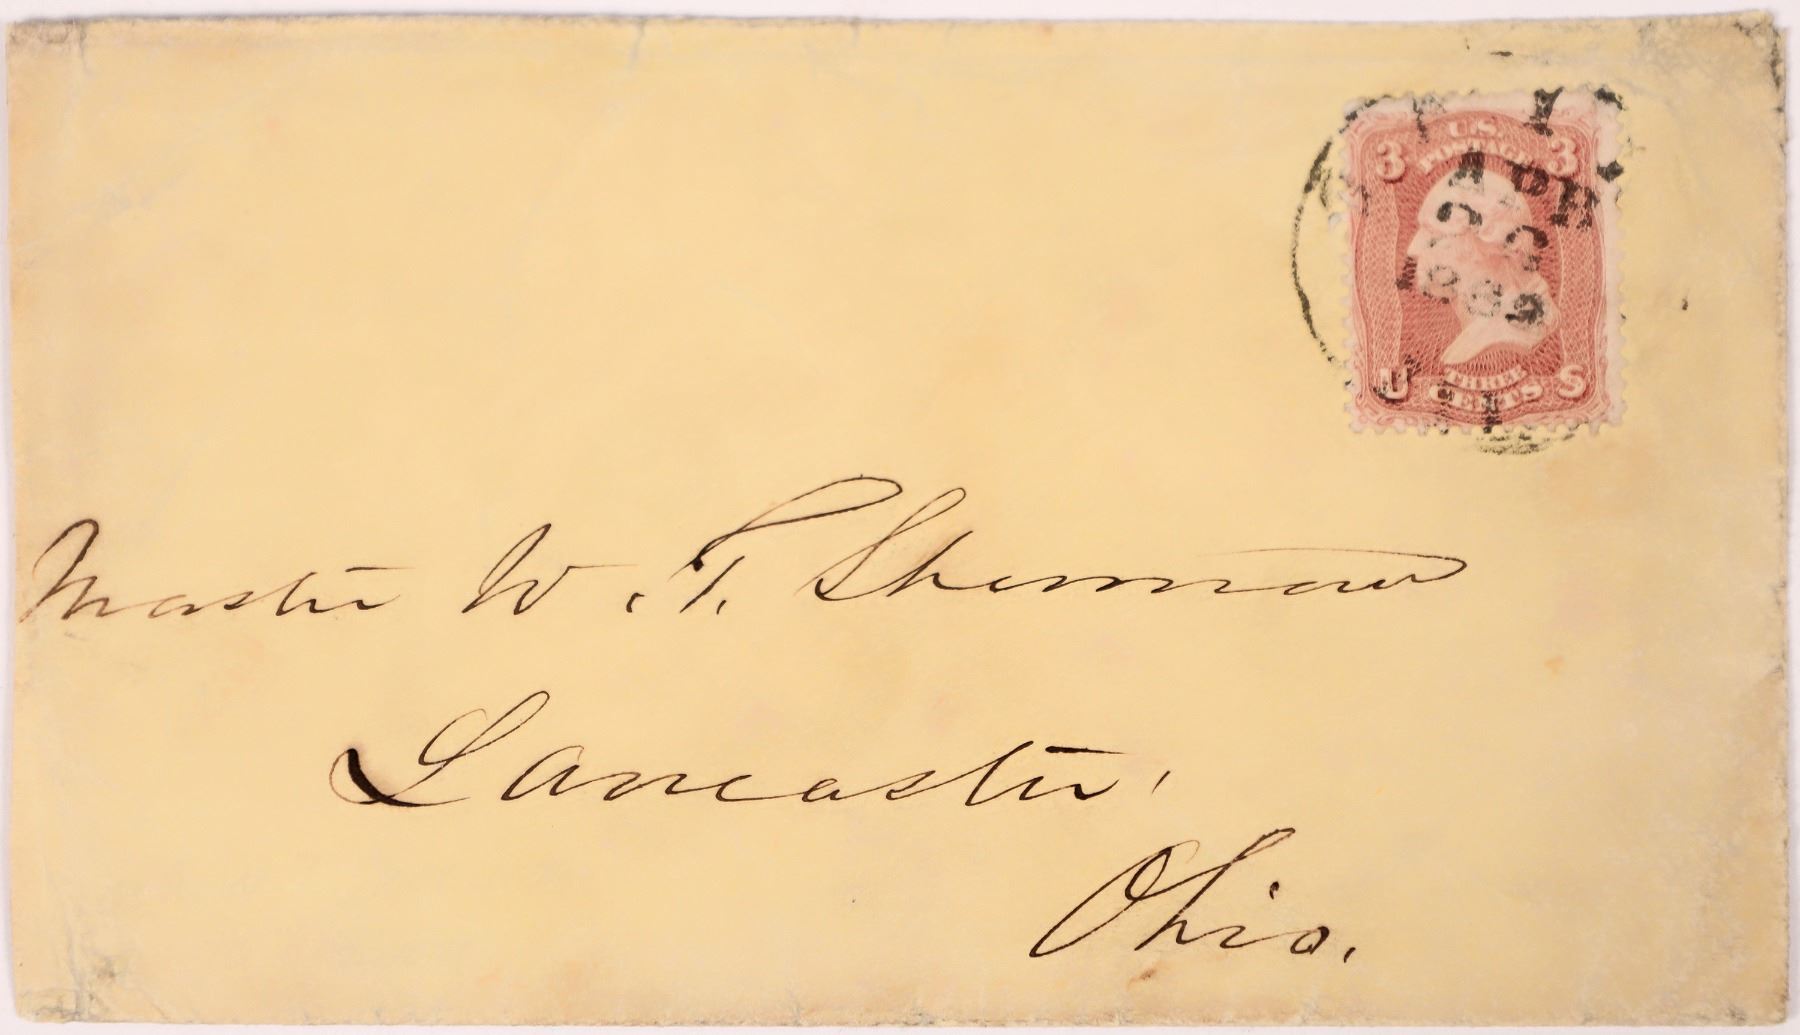 U.S.
POSTAGE
3 3
APR
26
1862
U S
THREE
CENTS
Master W. T. Sherman
Lancaster,
Ohio.